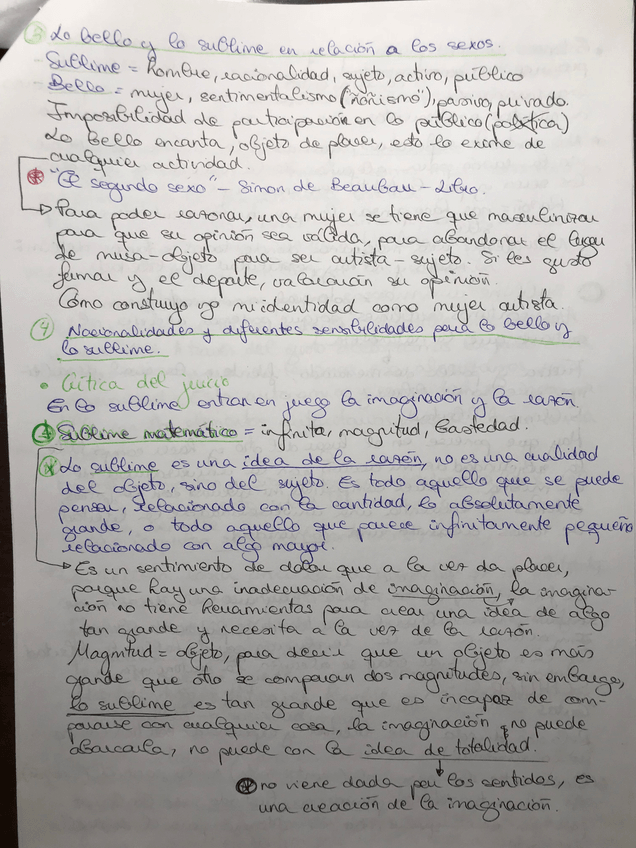 ③ Lo bello y lo sublime en relación a los sexos.
Sublime = hombre, racionalidad, sujeto, activo, público
Bello = mujer, sentimentalismo ("ñoñismo"), pasivo, privado.
Imposibilidad de participación en lo público (política)
Lo bello encanta, objeto de placer, esto lo exime de
cualquier actividad.
"El segundo sexo" - Simon de Beaubau - Libro.
Para poder razonar, una mujer se tiene que masculinizar
para que su opinión sea válida, para abandonar el lugar
de musa-objeto para ser artista-sujeto. Si les gusta
fumar y el deporte, valorarán su opinión.
Cómo construyo yo mi identidad como mujer artista.
④ Nacionalidades y diferentes sensibilidades para lo bello y
lo sublime.
• Crítica del juicio
En lo sublime entran en juego la imaginación y la razón
Sublime matemático = infinita, magnitud, bastedad.
Lo sublime es una idea de la razón, no es una cualidad
del objeto, sino del sujeto. Es todo aquello que se puede
pensar, relacionado con la cantidad, lo absolutamente
grande, o todo aquello que parece infinitamente pequeño
relacionado con algo mayor.
Es un sentimiento de dolor que a la vez da placer,
porque hay una inadecuación de imaginación, la imagina-
ción no tiene herramientas para crear una idea de algo
tan grande y necesita a la vez de la razón.
Magnitud = objeto, para decir que un objeto es más
grande que otro se comparan dos magnitudes, sin embargo,
lo sublime es tan grande que es incapaz de com-
pararse con cualquier cosa, la imaginación no puede
abarcarla, no puede con la idea de totalidad.
no viene dada por los sentidos, es
una creación de la imaginación.